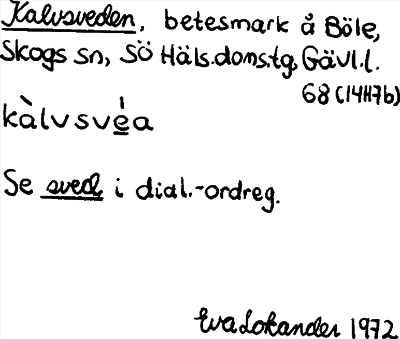 Kalvsveden, betesmark å Böle,
Skogs sn, Sö Häls.doms.tg, Gävl.l.
68 (14H7b)
kàlvsvéa
Se sved i dial.-ordreg.
Eva Lokander 1972